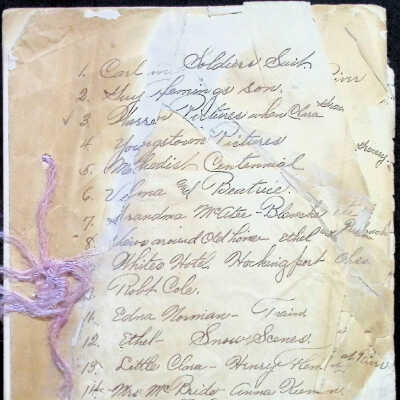 1. Carl in Soldiers Suit
2. Guy Hemings son.
✓ 3. Warren Pictures when Clara
4. Youngstown Pictures
5. Methodist Centennial
6. Velma and Beatrice.
7. Grandma McAtee - Blanche
8. Views around Old home Ethel
White Hotel. Hockingport Ohio
Robt Cole.
11. Edna Norman - Train
12. Ethel - Snow Scenes.
13. Little Clara - Henry
14. Mrs McBride - Anna